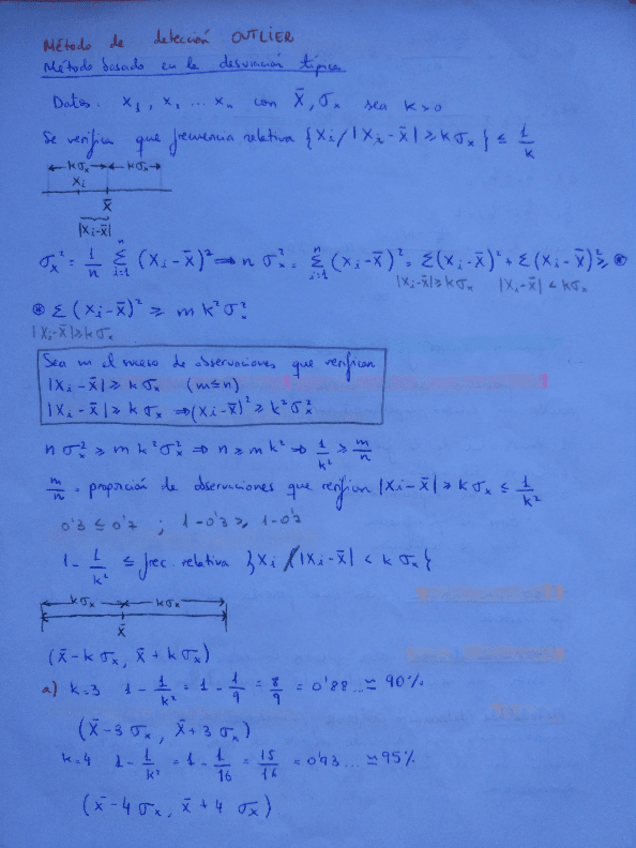 Método de detección OUTLIER
Método basado en la desviación típica
Datos: x₁, x₁ ... xₙ con x̄, σₓ sea k>0
Se verifica que frecuencia relativa {xi / |xi - x̄| ≥ kσₓ} ≤ 1/k
kσₓ kσₓ
xi
x̄
|xi-x̄|
σₓ² = 1/n Σᵢ₌₁ⁿ (xi - x̄)² ⇒ n σₓ² = Σᵢ₌₁ⁿ (xi - x̄)² = Σ(xi - x̄)² + Σ(xi - x̄)² ≥ ⊛
|xi-x̄| ≥ kσₓ |xi-x̄| < kσₓ
⊛ Σ (xi - x̄)² ≥ m k² σ²
|xi-x̄| ≥ kσₓ
Sea m el de observaciones que verifican
|xi - x̄| ≥ kσₓ (m≤n)
|xi - x̄| ≥ kσₓ ⇒ (xi - x̄)² ≥ k²σₓ²
n σₓ² ≥ m k² σₓ² ⇒ n ≥ mk² ⇒ 1/k² ≥ m/n
m/n = proporción de observaciones que verifican |xi - x̄| ≥ kσₓ ≤ 1/k²
0'3 ≤ 0'7 ; 1-0'3 ≥ 1-0'7
1 - 1/k² ≤ frec. relativa {xi / |xi - x̄| < kσₓ}
kσₓ kσₓ
x̄
(x̄ - kσₓ, x̄ + kσₓ)
a) k=3 1 - 1/k² = 1 - 1/9 = 8/9 = 0'88... ≃ 90%
(x̄ - 3σₓ, x̄ + 3σₓ)
k=4 1 - 1/k² = 1 - 1/16 = 15/16 = 0'93... ≃ 95%
(x̄ - 4σₓ, x̄ + 4σₓ)